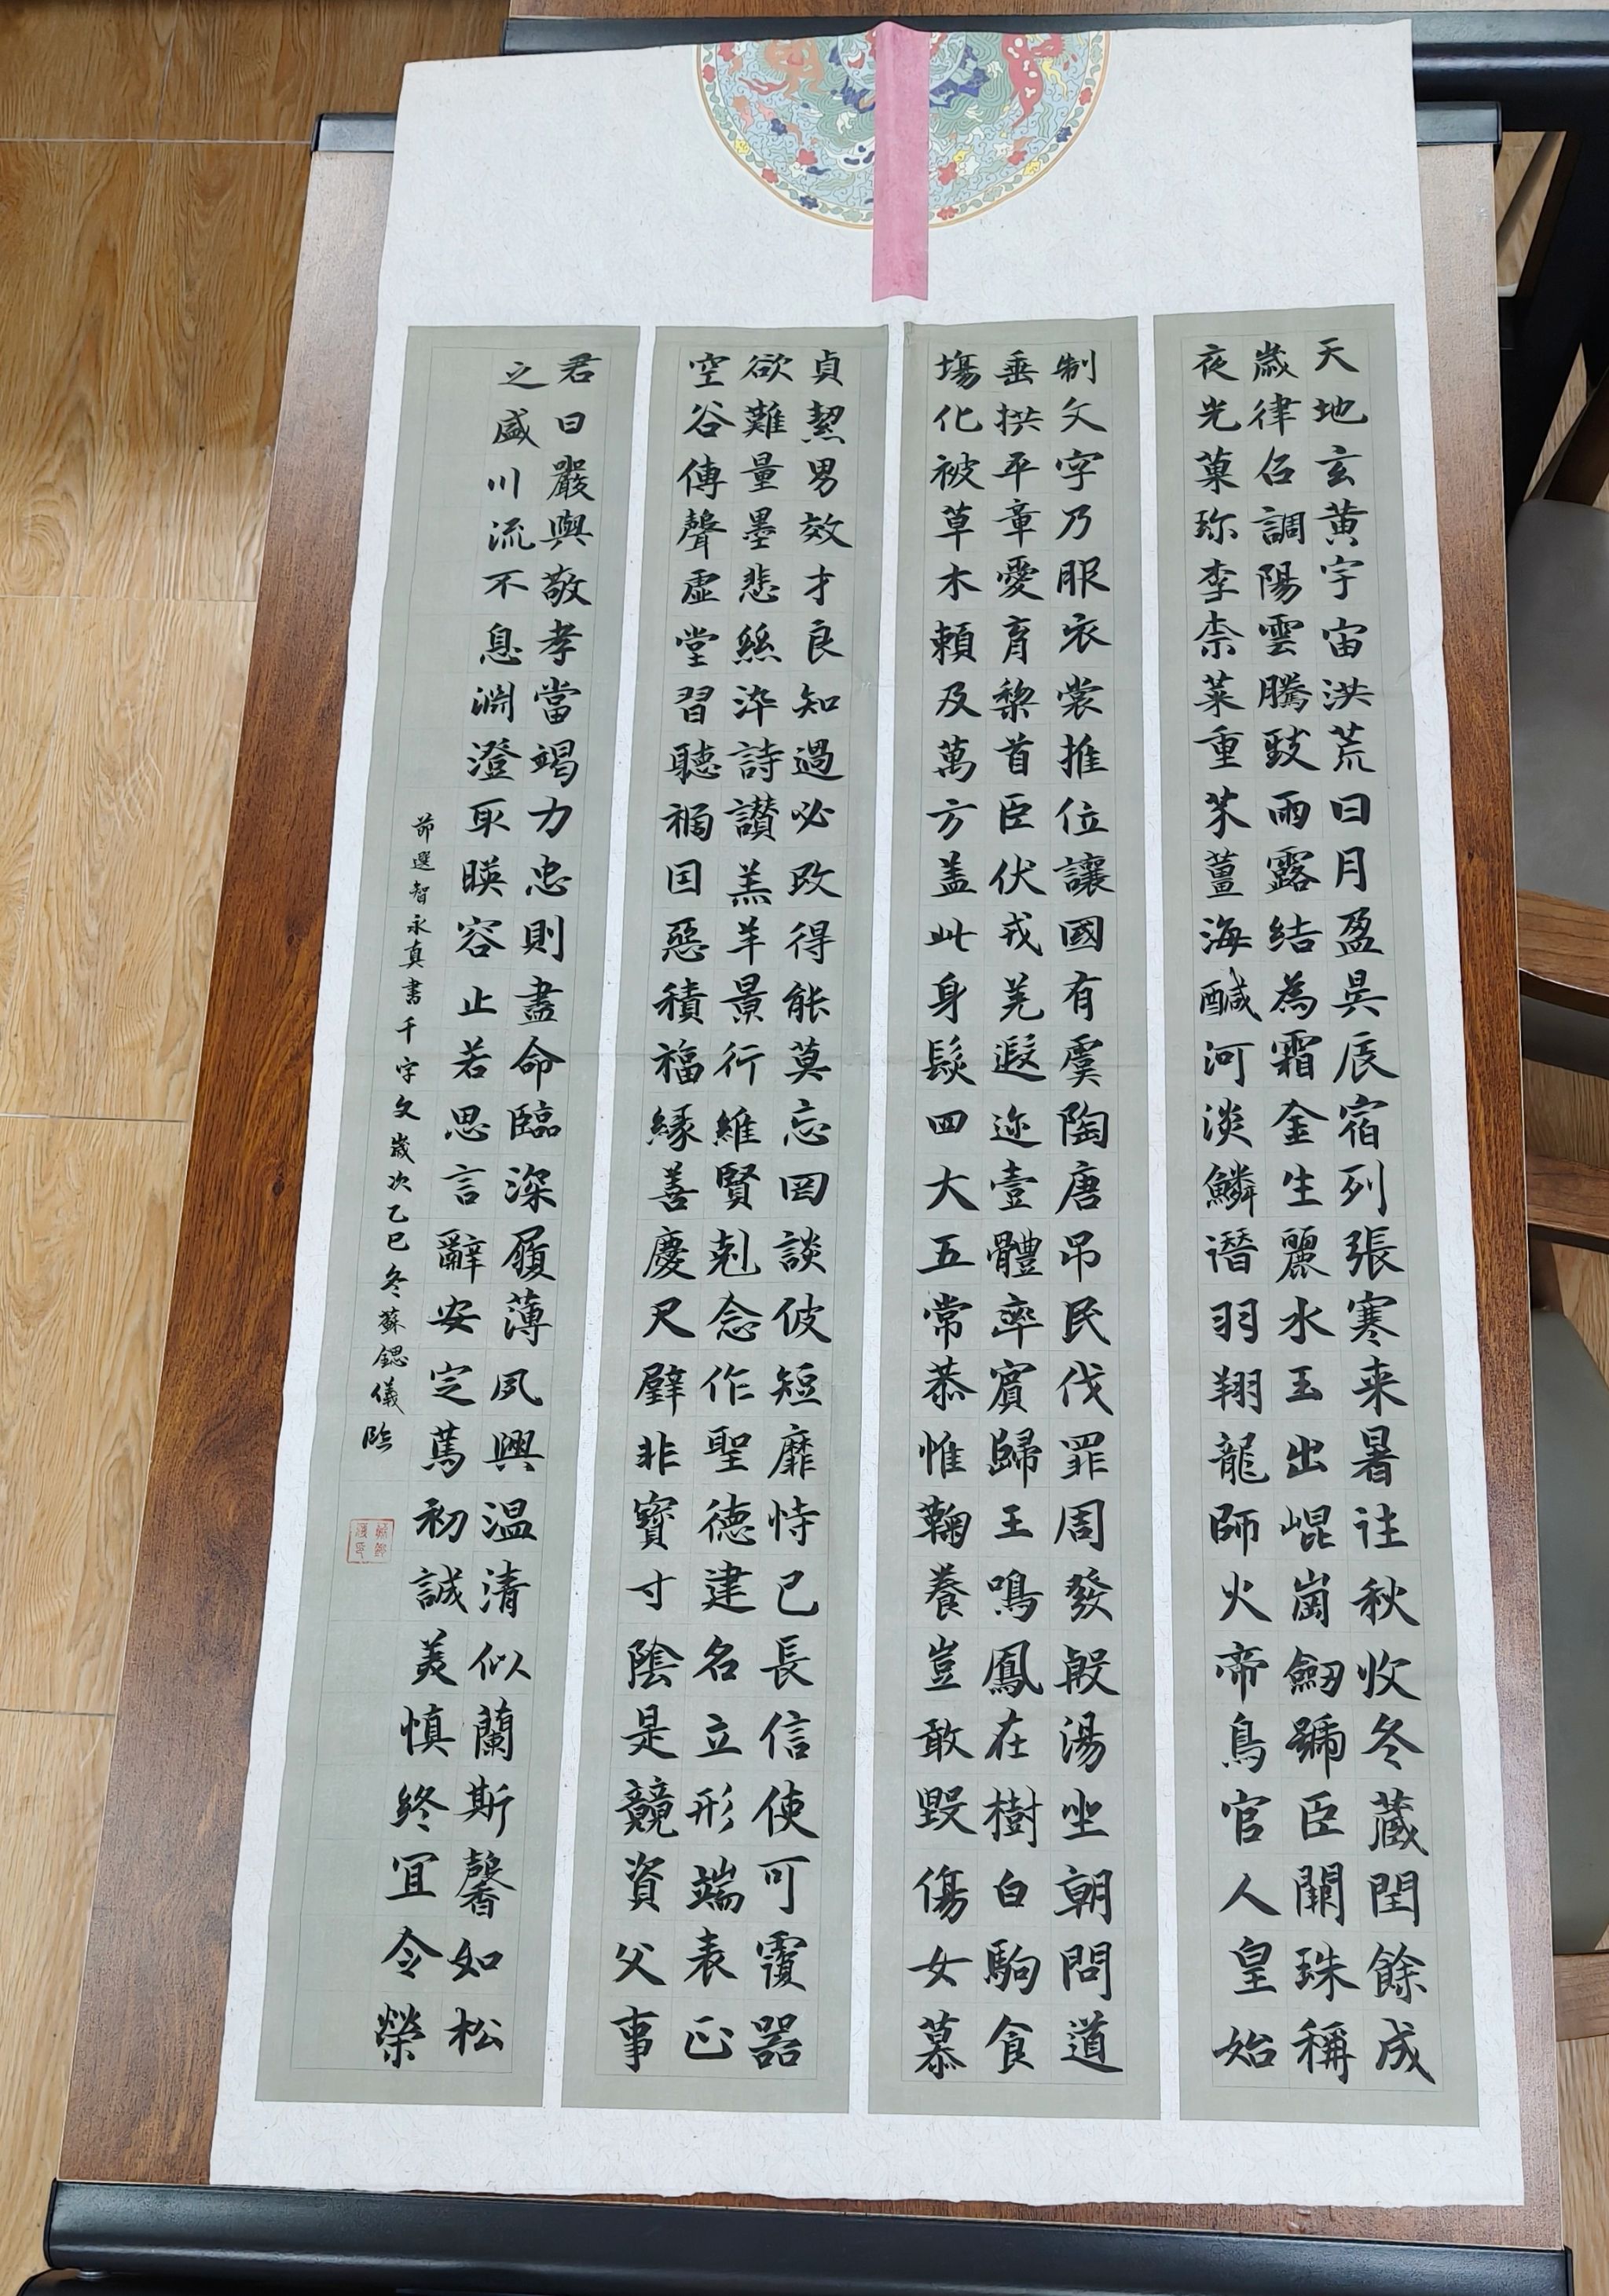 天地玄黄宇宙洪荒日月盈昃辰宿列張寒来暑往秋收冬蔵閏餘成
歲律召調陽雲騰致雨露結為霜金生麗水玉出崐崗劒號巨闕珠稱
夜光菓珎李柰菜重芥薑海醎河淡鱗潛羽翔龍師火帝鳥官人皇始
制文字乃服衣裳推位讓國有虞陶唐吊民伐罪周發殷湯坐朝問道
垂拱平章愛育黎首臣伏戎羌遐迩壹體率賓歸王鳴鳳在樹白駒食
場化被草木賴及萬方盖此身髮四大五常恭惟鞠養豈敢毀傷女慕
貞絜男效才良知過必改得能莫忘罔談彼短靡恃己長信使可覆器
欲難量墨悲絲染詩讃羔羊景行維賢剋念作聖德建名立形端表正
空谷傳聲虛堂習聽禍因惡積福緣善慶尺璧非寶寸陰是競資父事
君曰嚴與敬孝當竭力忠則盡命臨深履薄夙興温清似蘭斯馨如松
之盛川流不息淵澄取暎容止若思言辭安定篤初誠美慎終宜令榮
節選智永真書千字文歲次乙巳冬蘇鍶儀臨